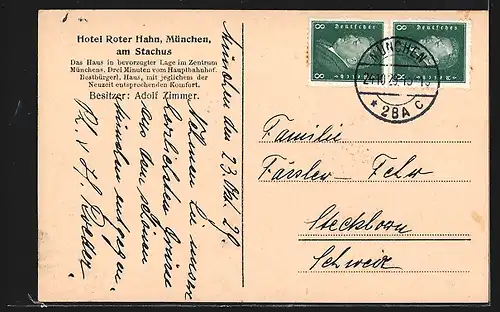 Hotel Roter Hahn, München,
am Stachus
Das Haus in bevorzugter Lage im Zentrum
Münchens. Drei Minuten vom Hauptbahnhof.
Bestbürgerl. Haus, mit jeglichem der
Neuzeit entsprechenden Komfort.
Besitzer: Adolf Zimmer.
München den 23. Okt. 29.
Nehmen Sie unsere
herzlichsten Grüsse
aus dem schönen
München entgegen
Deutsches Reich
8 8
Deutsches Reich
8 8
MÜNCHEN
24.10.29.
* 2BA C
Familie
Fehr
Steckborn
Schweiz